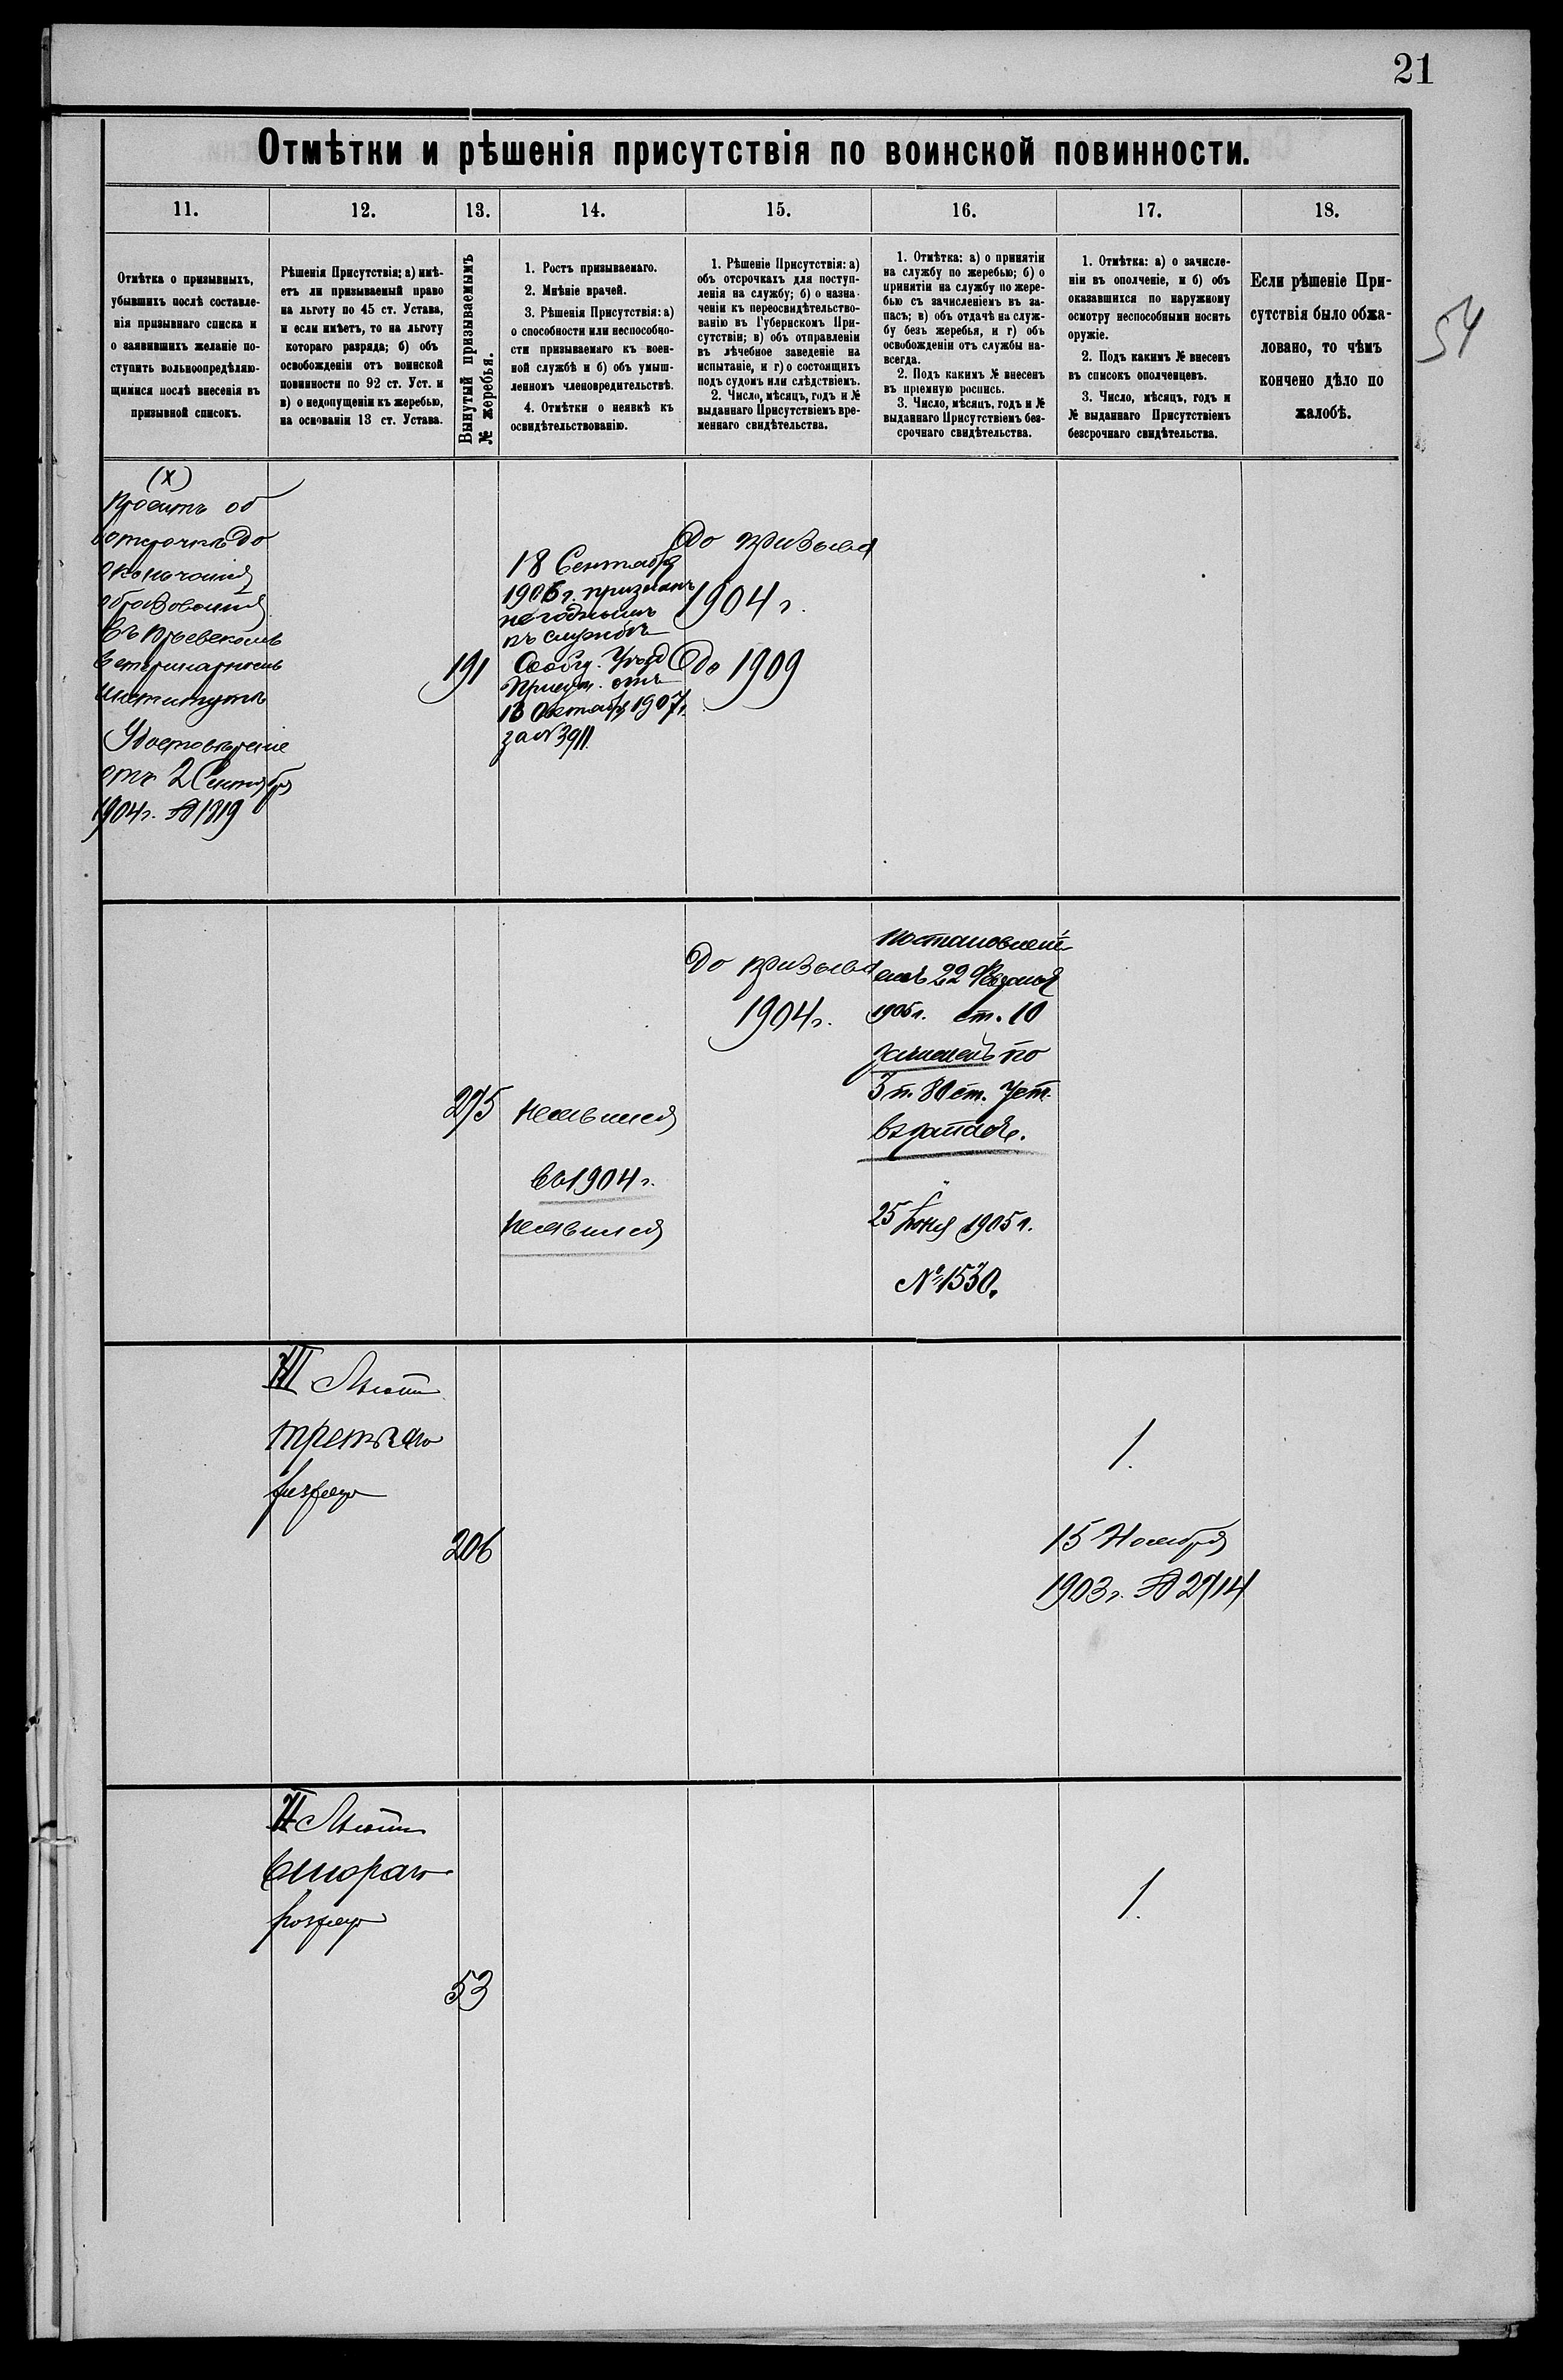 21
54
Отмѣтки и рѣшенія присутствія по воинской повинности.
11.
12.
13.
14.
15.
16.
17.
18.
Отмѣтка о призывныхъ,
убывшихъ послѣ составле-
нія призывнаго списка и
о заявившихъ желаніе по-
ступить вольноопредѣляю-
щимися послѣ внесенія въ
призывной списокъ.
Рѣшенія Присутствія: а) имѣ-
етъ ли призываемый право
на льготу по 45 ст. Устава,
и если имѣетъ, то на льготу
котораго разряда; б) объ
освобожденіи отъ воинской
повинности по 92 ст. Уст. и
в) о недопущеніи къ жеребью,
на основаніи 13 ст. Устава.
Вынутый призываемымъ
№ жеребья.
1. Ростъ призываемаго.
2. Мнѣніе врачей.
3. Рѣшенія Присутствія: а)
о способности или неспособно-
сти призываемаго къ воен-
ной службѣ и б) объ умыш-
ленномъ членовредительствѣ.
4. Отмѣтки о неявкѣ къ
освидѣтельствованію.
1. Рѣшеніе Присутствія: а)
объ отсрочкахъ для поступ-
ленія на службу; б) о назна-
ченіи къ переосвидѣтельство-
ванію въ Губернскомъ При-
сутствіи; в) объ отправленіи
въ лѣчебное заведеніе на
испытаніе, и г) о состоящихъ
подъ судомъ или слѣдствіемъ.
2. Число, мѣсяцъ, годъ и №
выданнаго Присутствіемъ вре-
меннаго свидѣтельства.
1. Отмѣтка: а) о принятіи
на службу по жеребью; б) о
принятіи на службу по жере-
бью съ зачисленіемъ въ за-
пасъ; в) объ отдачѣ на служ-
бу безъ жеребья, и г) объ
освобожденіи отъ службы на-
всегда.
2. Подъ какимъ № внесенъ
въ пріемную роспись.
3. Число, мѣсяцъ, годъ и №
выданнаго Присутствіемъ без-
срочнаго свидѣтельства.
1. Отмѣтка: а) о зачисле-
ніи въ ополченіе, и б) объ
оказавшихся по наружному
осмотру неспособными носить
оружіе.
2. Подъ какимъ № внесенъ
въ списокъ ополченцевъ.
3. Число, мѣсяцъ, годъ и
№ выданнаго Присутствіемъ
безсрочнаго свидѣтельства.
Если рѣшеніе При-
сутствія было обжа-
ловано, то чѣмъ
кончено дѣло по
жалобѣ.
(х)
Проситъ об
отсрочкѣ до
окончанія
образованія
въ Юрьевскомъ
Ветеринарномъ
институтѣ
Удостовѣреніе
отъ 2 Сентября
1904 г. № 1819
191
18 Сентября
1906 г. признанъ
негоднымъ
къ службѣ
Сообщ. Уѣзд
Присут. отъ
18 Октября 1907 г.
за № 3911.
До призыва
1904 г.
До 1909
275
неявился
въ 1904 г.
неявился
До призыва
1904 г.
постановлені-
емъ 22 Февраля
1905 г. ст. 10
зачисленъ по
3 п. 80 ст. Уст.
въ запасъ.
25 Іюня 1905 г.
№ 1530.
III Льготы
третьяго
разряда
206
1.
15 Ноября
1903 г. № 2714
II Льготы
втораго
разряда
53
1.